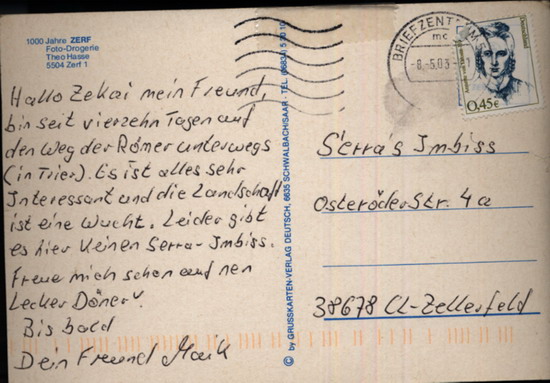 1000 Jahre ZERF
Foto-Drogerie
Theo Hasse
5504 Zerf 1
Hallo Zekai mein Freund,
bin seit vierzehn Tagen auf
den Weg der Römer unterwegs
(in Trier). Es ist alles sehr
Interessant und die Landschaft
ist eine Wucht. Leider gibt
es hier keinen Serra-Imbiss.
Freue mich schon auf nen
Lecker Döner
Bis bald
Dein Freund Maik
© by GRUSSKARTEN-VERLAG DEUTSCH, 6635 SCHWALBACH/SAAR - TEL.
BRIEFZENTRUM
mc
-8.-5.03
0,45€
Serra's Imbiss
Osteröder Str. 4a
38678 Cl-Zellerfeld